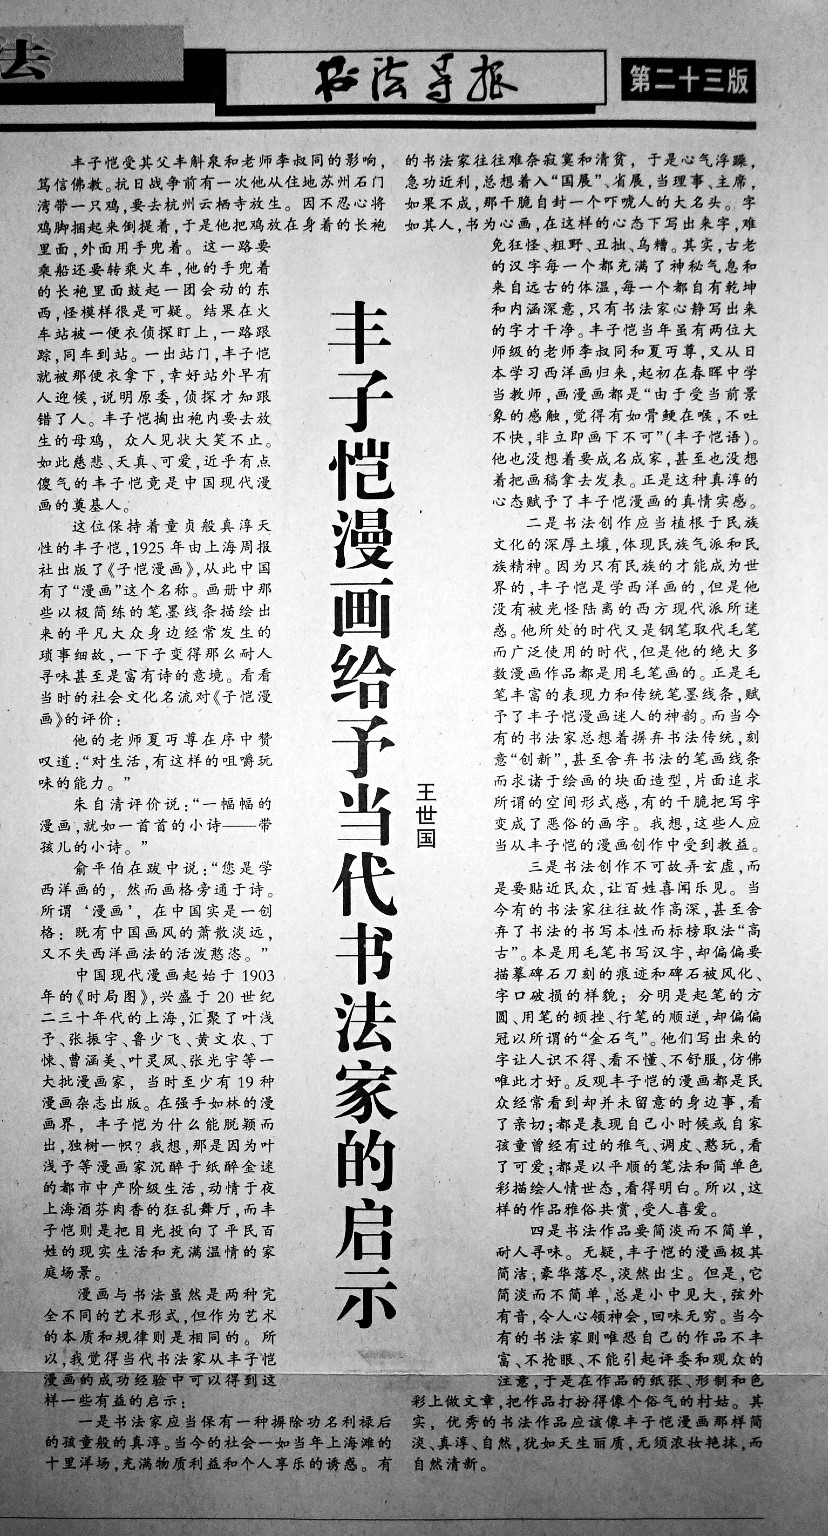 法
书法导报
第二十三版
丰子恺漫画给予当代书法家的启示
王世国
丰子恺受其父丰斛泉和老师李叔同的影响，
笃信佛教。抗日战争前有一次他从住地苏州石门
湾带一只鸡，要去杭州云栖寺放生。因不忍心将
鸡脚捆起来倒提着，于是他把鸡放在身着的长袍
里面，外面用手兜着。这一路要
乘船还要转乘火车，他的手兜着
的长袍里面鼓起一团会动的东
西，怪模样很是可疑。结果在火
车站被一便衣侦探盯上，一路跟
踪，同车到站。一出站门，丰子恺
就被那便衣拿下，幸好站外早有
人迎候，说明原委，侦探才知跟
错了人。丰子恺掏出袍内要去放
生的母鸡，众人见状大笑不止。
如此慈悲、天真、可爱，近乎有点
傻气的丰子恺竟是中国现代漫
画的奠基人。
这位保持着童贞般真淳天
性的丰子恺，1925 年由上海周报
社出版了《子恺漫画》，从此中国
有了“漫画”这个名称。画册中那
些以极简练的笔墨线条描绘出
来的平凡大众身边经常发生的
琐事细故，一下子变得那么耐人
寻味甚至是富有诗的意境。看看
当时的社会文化名流对《子恺漫
画》的评价：
他的老师夏丏尊在序中赞
叹道：“对生活，有这样的咀嚼玩
味的能力。”
朱自清评价说：“一幅幅的
漫画，就如一首首的小诗——带
孩儿的小诗。”
俞平伯在跋中说：“您是学
西洋画的，然而画格旁通于诗。
所谓‘漫画’，在中国实是一创
格：既有中国画风的萧散淡远，
又不失西洋画法的活泼憨恣。”
中国现代漫画起始于 1903
年的《时局图》，兴盛于 20 世纪
二三十年代的上海，汇聚了叶浅
予、张振宇、鲁少飞、黄文农、丁
悚、曹涵美、叶灵凤、张光宇等一
大批漫画家，当时至少有 19 种
漫画杂志出版。在强手如林的漫
画界，丰子恺为什么能脱颖而
出，独树一帜？我想，那是因为叶
浅予等漫画家沉醉于纸醉金迷
的都市中产阶级生活，动情于夜
上海酒芬肉香的狂乱舞厅，而丰
子恺则是把目光投向了平民百
姓的现实生活和充满温情的家
庭场景。
漫画与书法虽然是两种完
全不同的艺术形式，但作为艺术
的本质和规律则是相同的。所
以，我觉得当代书法家从丰子恺
漫画的成功经验中可以得到这
样一些有益的启示：
一是书法家应当保有一种摒除功名利禄后
的孩童般的真淳。当今的社会一如当年上海滩的
十里洋场，充满物质利益和个人享乐的诱惑。有
的书法家往往难奈寂寞和清贫，于是心气浮躁，
急功近利，总想着入“国展”、省展，当理事、主席，
如果不成，那干脆自封一个吓唬人的大名头。字
如其人，书为心画，在这样的心态下写出来字，难
免狂怪、粗野、丑拙、乌糟。其实，古老
的汉字每一个都充满了神秘气息和
来自远古的体温，每一个都自有乾坤
和内涵深意，只有书法家心静写出来
的字才干净。丰子恺当年虽有两位大
师级的老师李叔同和夏丏尊，又从日
本学习西洋画归来，起初在春晖中学
当教师，画漫画都是“由于受当前景
象的感触，觉得有如骨鲠在喉，不吐
不快，非立即画下不可”（丰子恺语）。
他也没想着要成名成家，甚至也没想
着把画稿拿去发表。正是这种真淳的
心态赋予了丰子恺漫画的真情实感。
二是书法创作应当植根于民族
文化的深厚土壤，体现民族气派和民
族精神。因为只有民族的才能成为世
界的，丰子恺是学西洋画的，但是他
没有被光怪陆离的西方现代派所迷
惑。他所处的时代又是钢笔取代毛笔
而广泛使用的时代，但是他的绝大多
数漫画作品都是用毛笔画的。正是毛
笔丰富的表现力和传统笔墨线条，赋
予了丰子恺漫画迷人的神韵。而当今
有的书法家总想着摒弃书法传统，刻
意“创新”，甚至舍弃书法的笔画线条
而求诸于绘画的块面造型，片面追求
所谓的空间形式感，有的干脆把写字
变成了恶俗的画字。我想，这些人应
当从丰子恺的漫画创作中受到教益。
三是书法创作不可故弄玄虚，而
是要贴近民众，让百姓喜闻乐见。当
今有的书法家往往故作高深，甚至舍
弃了书法的书写本性而标榜取法“高
古”。本是用毛笔书写汉字，却偏偏要
描摹碑石刀刻的痕迹和碑石被风化、
字口破损的样貌；分明是起笔的方
圆、用笔的顿挫、行笔的顺逆，却偏偏
冠以所谓的“金石气”。他们写出来的
字让人识不得、看不懂、不舒服，仿佛
唯此才好。反观丰子恺的漫画都是民
众经常看到却并未留意的身边事，看
了亲切；都是表现自己小时候或自家
孩童曾经有过的稚气、调皮、憨玩，看
了可爱；都是以平顺的笔法和简单色
彩描绘人情世态，看得明白。所以，这
样的作品雅俗共赏，受人喜爱。
四是书法作品要简淡而不简单，
耐人寻味。无疑，丰子恺的漫画极其
简洁，豪华落尽，淡然出尘。但是，它
简淡而不简单，总是小中见大，弦外
有音，令人心领神会，回味无穷。当今
有的书法家则唯恐自己的作品不丰
富、不抢眼、不能引起评委和观众的
注意，于是在作品的纸张、形制和色
彩上做文章，把作品打扮得像个俗气的村姑。其
实，优秀的书法作品应该像丰子恺漫画那样简
淡、真淳、自然，犹如天生丽质，无须浓妆艳抹，而
自然清新。